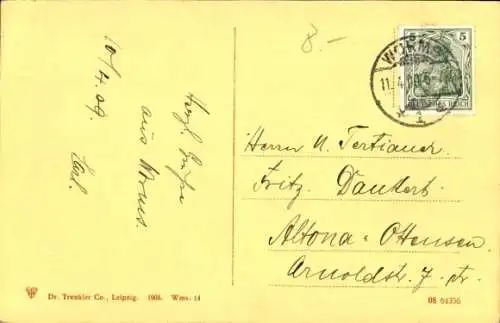 8.-
10/4.09.
Herzl. Grüße
aus Worms.
Karl.
5 5
WORMS
11.4.09.
* 1
DEUTSCHES REICH
Herrn U. Tertianer
Fritz Dankert
Altona-Ottensen
Arnoldstr. 7. pr.
Dr. Trenkler Co., Leipzig. 1908. Wms. 14
08 64356